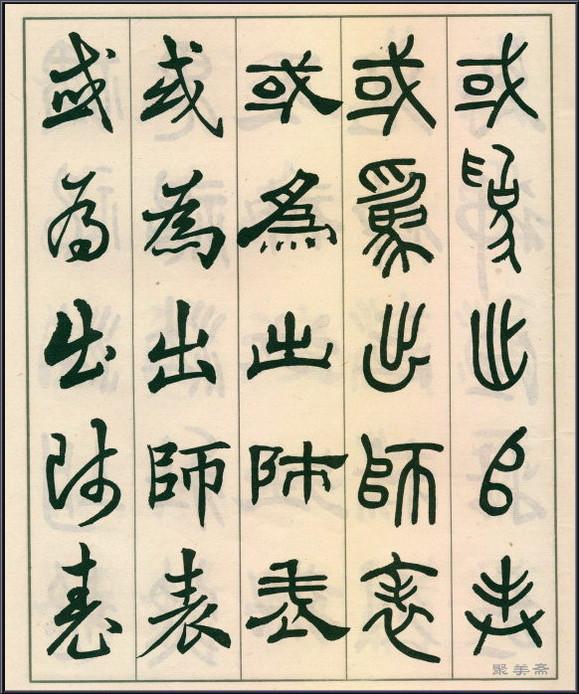 或爲出師表
或爲出師表
或為出師表
或為出師表
或為出師表
聚美斋